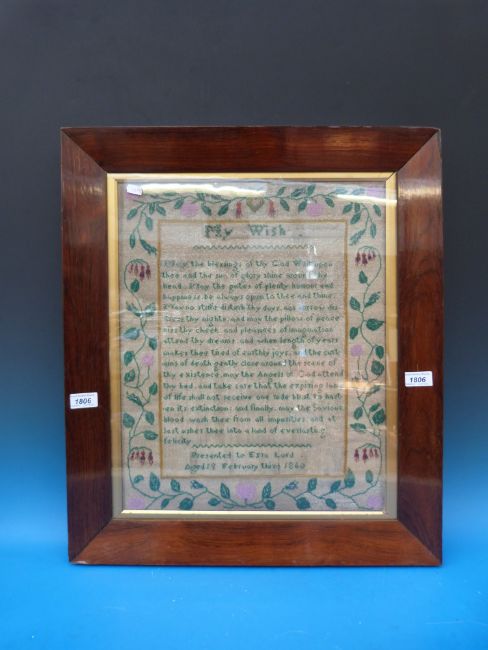 My Wish
May the blessings of thy God Wait upon
thee and the sun of glory shine around thy
head. May the gates of plenty honour and
happiness be always open to thee and thine.
May no strife disturb thy days, nor sorrow dis
tress thy nights, and may the pillow of peace
kiss thy cheek, and pleasures of imagination
attend thy dreams, and when length of years
makes thee tired of earthly joys, and the curt
ains of death gently close around the scene of
thy existence, may the Angels of God attend
thy bed, and take care that the expiring lamp
of life shall not receive one rude blast to hast
en its extinction; and finally, may the Saviours
blood wash thee from all impurities, and at
last usher thee into a land of everlasting
felicity
Presented to Ezra Lord
Aged 19 February 1860
1806
1806